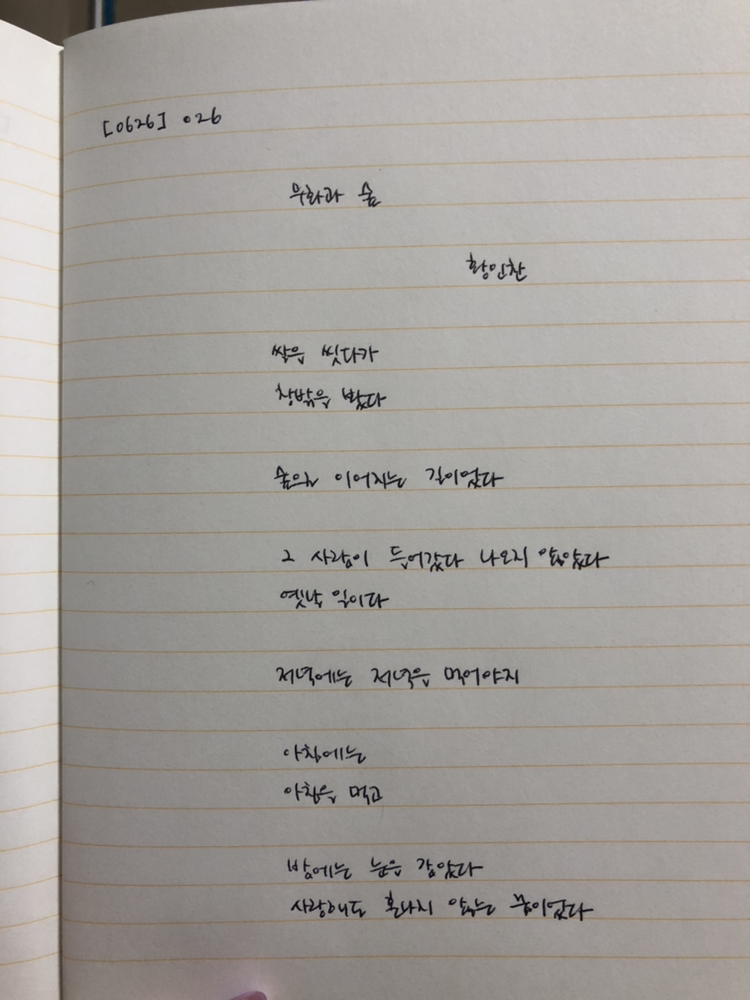 [0626] 026
무화과 숲
황인찬
쌀을 씻다가
창밖을 봤다
숲으로 이어지는 길이었다
그 사람이 들어갔다 나오지 않았다
옛날 일이다
저녁에는 저녁을 먹어야지
아침에는
아침을 먹고
밤에는 눈을 감았다
사랑해도 혼나지 않는 꿈이었다